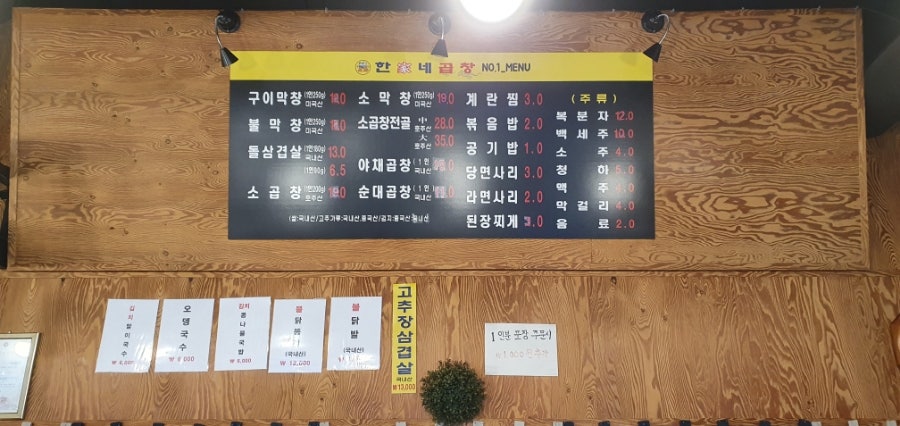 한家네곱창 NO.1_MENU
구이막창 (1인250g) 미국산
불막창 (1인250g) 미국산
돌삼겹살 (1인180g) 국내산 13.0
(1인90g) 6.5
소곱창 (1인200g) 호주산
소막창 (1인250g) 미국산 19.0
소곱창전골 中 호주산 28.0
大 호주산 35.0
야채곱창 (1인 국내산
순대곱창 (1인 국내산
(쌀:국내산/고추가루:국내산,중국산/김치:중국산
계란찜 3.0
볶음밥 2.0
공기밥 1.0
당면사리 3.0
라면사리 2.0
된장찌개 3.0
(주류)
복분자 12.0
백세주 10.0
소주 4.0
청하 5.0
맥주 4.0
막걸리 4.0
음료 2.0
김치말이국수
오뎅국수
₩ 6,000
김치콩나물국밥
불닭똥집
(국내산)
₩ 12,000
불닭발
(국내산)
고추장삼겹살
국내산
₩13,000
1인분 포장 주문시
₩ 1,000원 추가